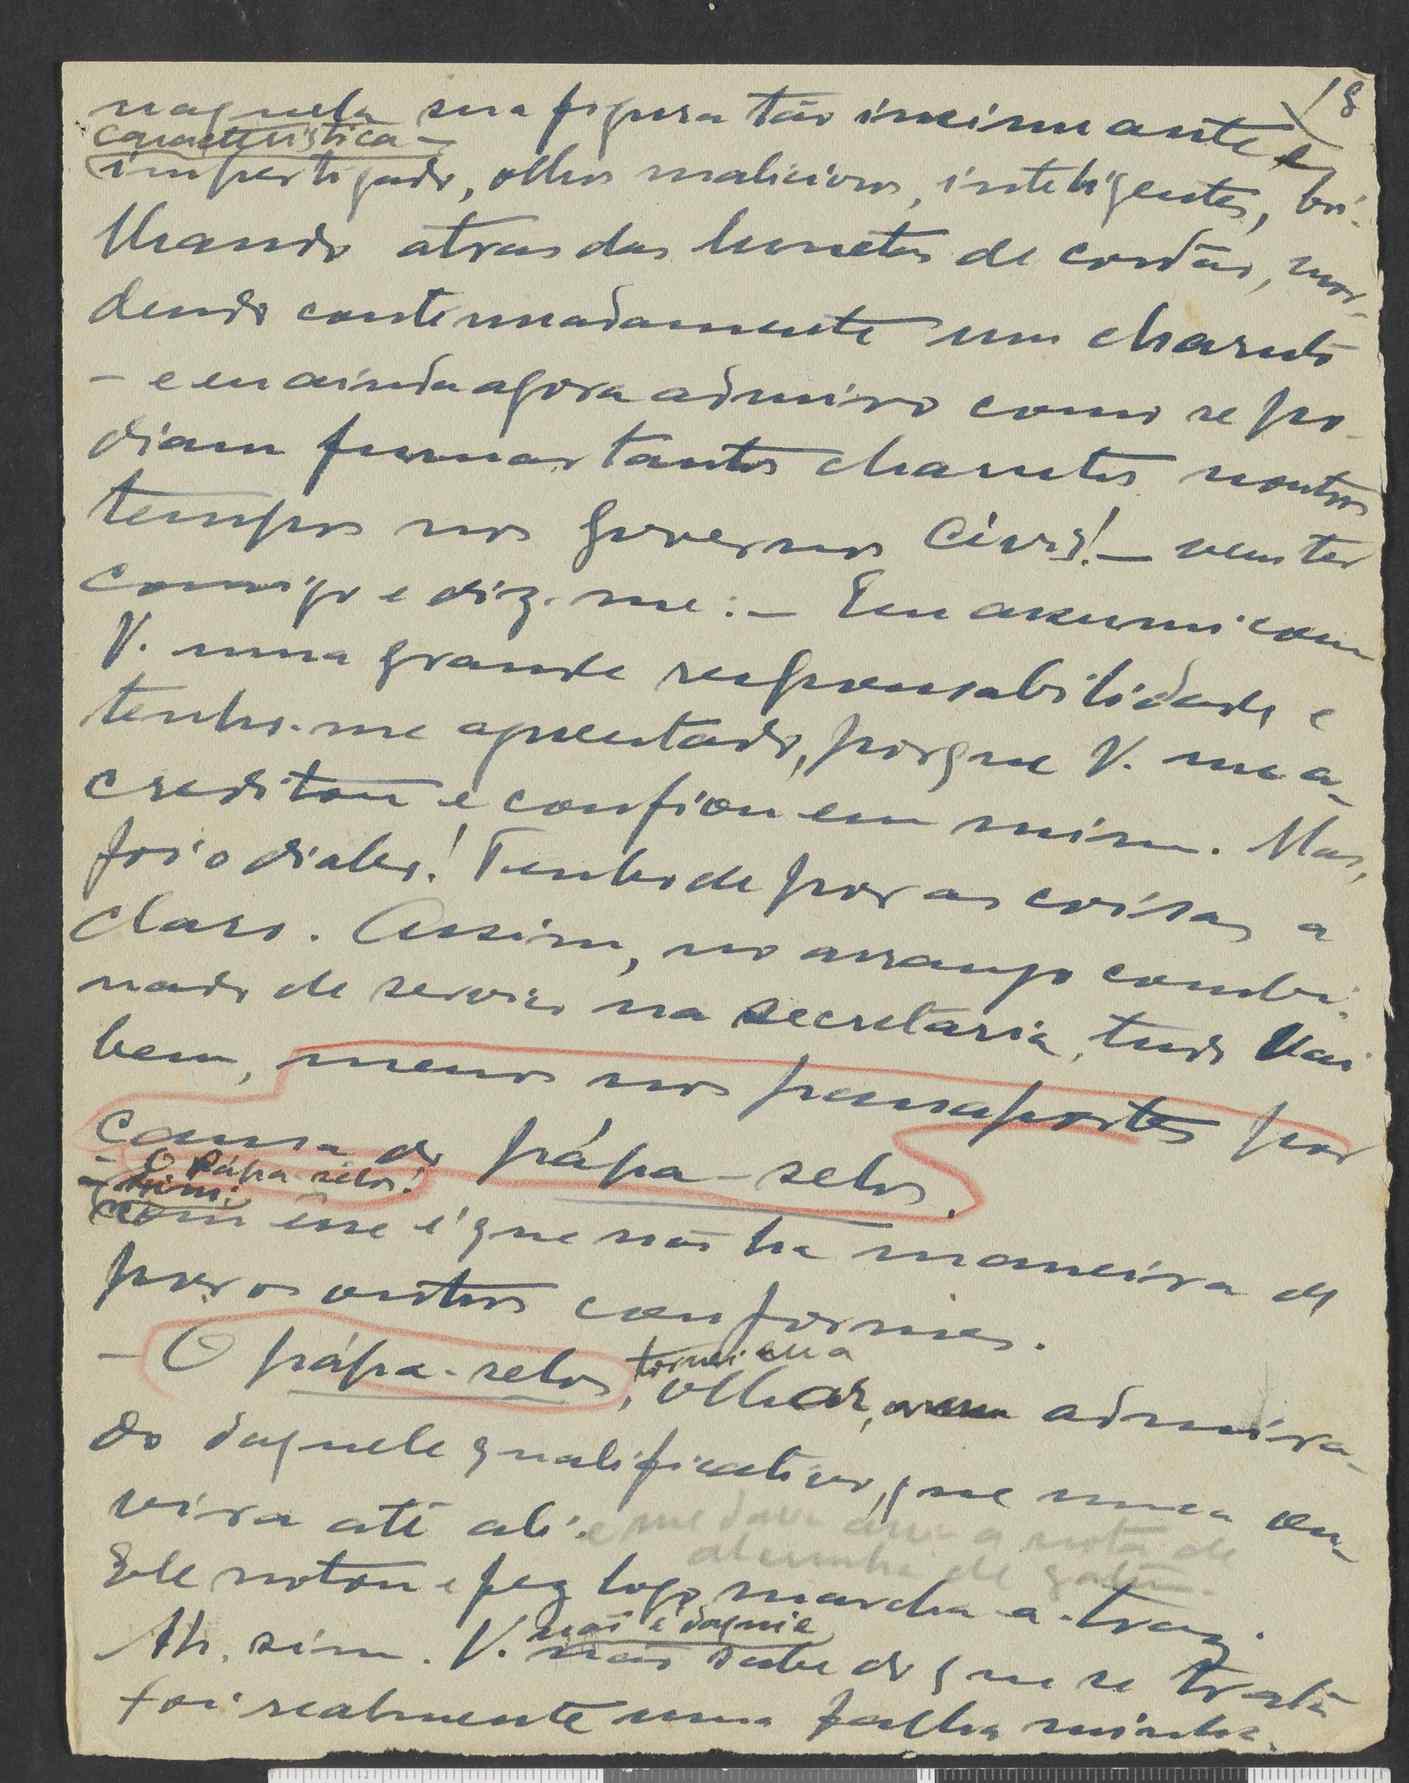 18
naquela sua figura tão insinuante e
caracteristica –
impertigado, olhos maliciosos, inteligentes, bri-
lhando atras das lunetas de cordão, mor-
dendo continuadamente um charuto
– e eu ainda agora admiro como se po-
diam fumar tantos charutos noutros
tempos nos Governos Civis! – vem ter
comigo e diz-me: – Eu assumi com
V. uma grande responsabilidade e
tenho-me aguentado, porque V. me a-
creditou e confiou em mim. Mas,
foi o diabo! Tenho de por as coisas a
claro. Assim, no arranjo combi-
nado de serviço na secretaria, tudo vai
bem, menos nos passaportes por
causa do pápa-selos.
– O Pápa-selos!
– Sim;
com êsse é que não ha maneira de
por os outros conformes.
– O pápa-selos, tornei eu a
olhar, admira-
do daquele qualificativo, que nunca ou-
vira até ali. e me dava a nota de
alcunha de
Ele notou e fez logo marcha-a-traz.
Ah, sim. V. não é daqui e
não sabe do que se trata
foi realmente uma falha minha.